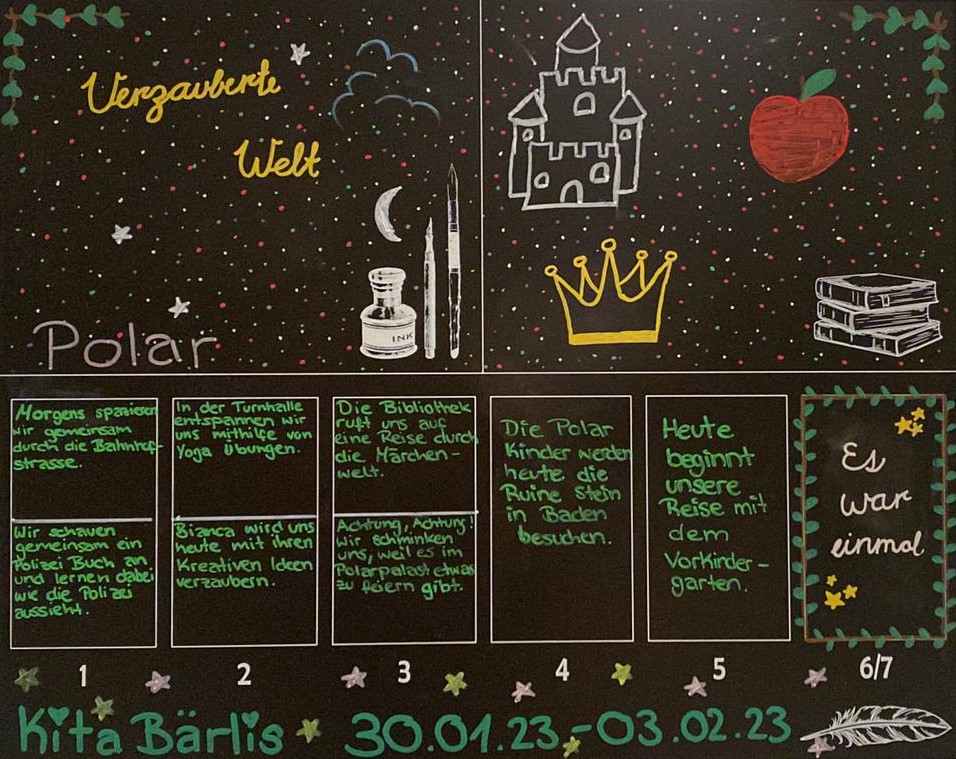 Verzauberte
Welt
Polar
INK
Morgens spazieren
wir gemeinsam
durch die Bahnhof-
strasse.
Wir schauen
gemeinsam ein
Polizei Buch an
und lernen dabei
wie die Polizei
aussieht.
In der Turnhalle
entspannen wir
uns mithilfe von
Yoga Übungen.
Bianca wird uns
heute mit ihren
Kreativen Ideen
verzaubern.
Die Bibliothek
ruft uns auf
eine Reise durch
die Märchen-
welt.
Achtung, Achtung!
Wir schminken
uns, weil es im
Polarpalast etwas
zu feiern gibt.
Die Polar
Kinder werden
heute die
Ruine stein
in Baden
besuchen.
Heute
beginnt
unsere
Reise mit
dem
Vorkinder-
garten.
Es
war
einmal
1 2 3 4 5 6/7
Kita Bärlis 30.01.23-03.02.23